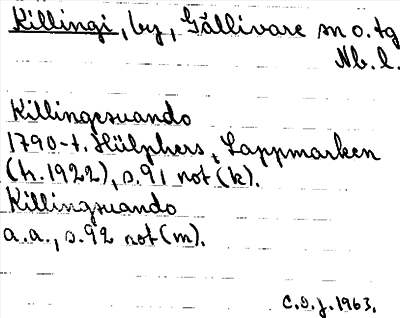 Killingi, by, Gällivare sn o. tg
Nb. l.
Killingesuando
1790-t. Hülphers, Lappmarken
(h. 1922), s. 91 not (k).
Killingsuando
a.a., s. 92 not (m).
C.O.J. 1963.